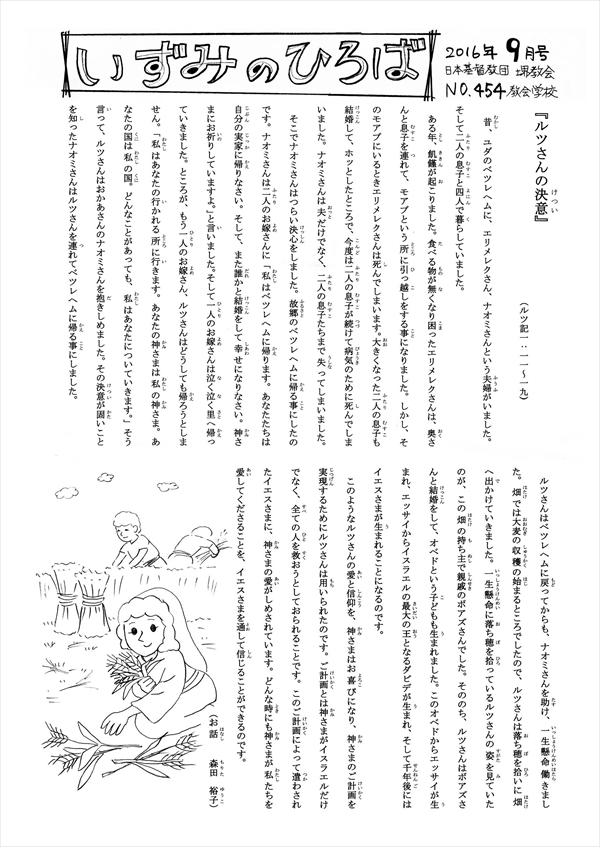 いずみのひろば
2016年 9月号
日本基督教団 堺教会
NO.454 教会学校
『ルツさんの決意』
(ルツ記一・一一〜一九)
昔、ユダのベツレヘムに、エリメレクさん、ナオミさんという夫婦がいました。
そして二人の息子と四人で暮らしていました。
ある年、飢饉が起こりました。食べる物が無くなり困ったエリメレクさんは、奥さ
んと息子を連れて、モアブという所に引っ越しをする事になりました。しかし、そ
のモアブにいるときエリメレクさんは死んでしまいます。大きくなった二人の息子も
結婚して、ホッとしたところで、今度は二人の息子が続けて病気のために死んでしま
いました。ナオミさんは夫だけでなく、二人の息子たちまで失ってしまいました。
そこでナオミさんはつらい決心をしました。故郷のベツレヘムに帰る事にしたの
です。ナオミさんは二人のお嫁さんに「私はベツレヘムに帰ります。あなたたちは
自分の実家に帰りなさい。そして、また誰かと結婚をして幸せになりなさい。神さ
まにお祈りしていますよ。」と言いました。そして一人のお嫁さんは泣く泣く里へ帰っ
ていきました。ところが、もう一人のお嫁さん、ルツさんはどうしても帰ろうとしま
せん。「私はあなたの行かれる所に行きます。あなたの神さまは私の神さま。あ
なたの国は私の国。どんなことがあっても、私はあなたについていきます。」そう
言って、ルツさんはおかあさんのナオミさんを抱きしめました。その決意が固いこと
を知ったナオミさんはルツさんを連れてベツレヘムに帰る事にしました。
ルツさんはベツレヘムに戻ってからも、ナオミさんを助け、一生懸命働きまし
た。畑では大麦の収穫の始まるところでしたので、ルツさんは落ち穂を拾いに畑
へ出かけていきました。一生懸命に落ち穂を拾っているルツさんの姿を見ていた
のが、この畑の持ち主で親戚のボアズさんでした。そののち、ルツさんはボアズさ
んと結婚をして、オベドという子どもも生まれました。このオベドからエッサイが生
まれ、エッサイからイスラエルの最大の王となるダビデが生まれ、そして千年後には
イエスさまが生まれることになるのです。
このようなルツさんの愛と信仰を、神さまはお喜びになり、神さまのご計画を
実現するためにルツさんは用いられたのです。ご計画とは神さまがイスラエルだけ
でなく、全ての人を救おうとしておられることです。このご計画によって遣わされ
たイエスさまに、神さまの愛がしめされています。どんな時にも神さまが私たちを
愛してくださることを、イエスさまを通して信じることができるのです。
(お話 森田 裕子)